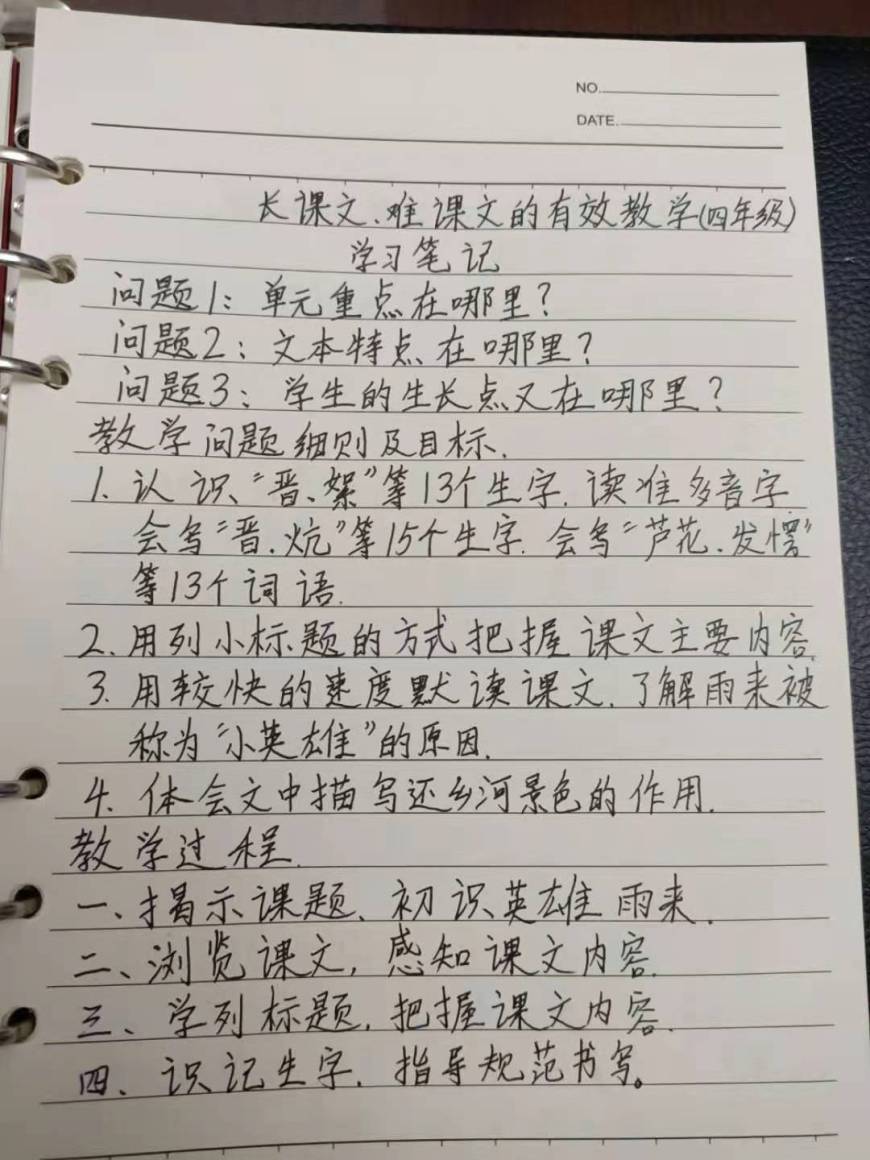 NO.
DATE.
长课文、难课文的有效教学(四年级)
学习笔记
问题1：单元重点在哪里？
问题2：文本特点在哪里？
问题3：学生的生长点又在哪里？
教学问题细则及目标.
1. 认识“晋、絮”等13个生字.读准多音字
会写“晋.炕”等15个生字.会写“芦花.发愣”
等13个词语.
2.用列小标题的方式把握课文主要内容.
3.用较快的速度默读课文.了解雨来被
称为“小英雄”的原因.
4.体会文中描写还乡河景色的作用.
教学过程.
一、揭示课题、初识英雄雨来.
二、浏览课文，感知课文内容.
三、学列标题.把握课文内容.
四、识记生字.指导规范书写。